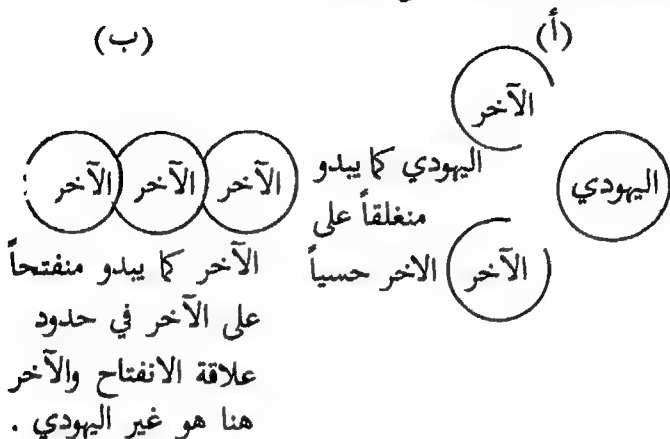 (أ)
الآخر
اليهودي
اليهودي كما يبدو
منغلقاً على
الاخر حسياً
الآخر
(ب)
الآخر الآخر الآخر
الآخر كما يبدو منفتحاً
على الآخر في حدود
علاقة الانفتاح والآخر
هنا هو غير اليهودي .